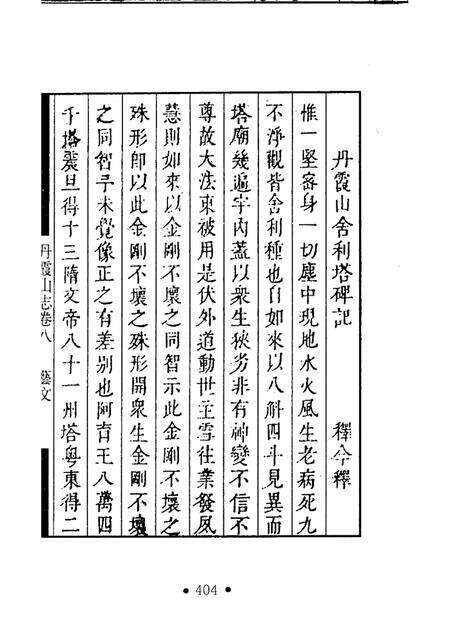 丹霞山舍利塔碑記 釋今釋
惟一堅密身一切塵中現地水火風生老病死九
不淨觀皆舍利種也自如來以八斛四斗見異而
塔廟幾遍宇內蓋以衆生狹劣非有神變不信不
尊故大法東被用是伏外道動世主雪往業發夙
慧則如來以金剛不壞之同智示此金剛不壞之
殊形卽以此金剛不壞之殊形開衆生金剛不壞
之同智予未覺像正之有差別也阿育王八萬四
千塔震旦得十三隋文帝八十一州塔粵東得二
丹霞山志卷八 藝文
• 404 •